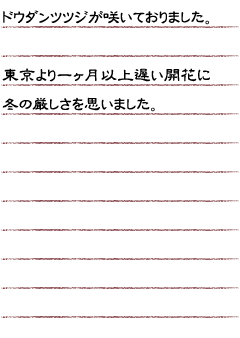 ドウダンツツジが咲いておりました。
東京より一ヶ月以上遅い開花に
冬の厳しさを思いました。